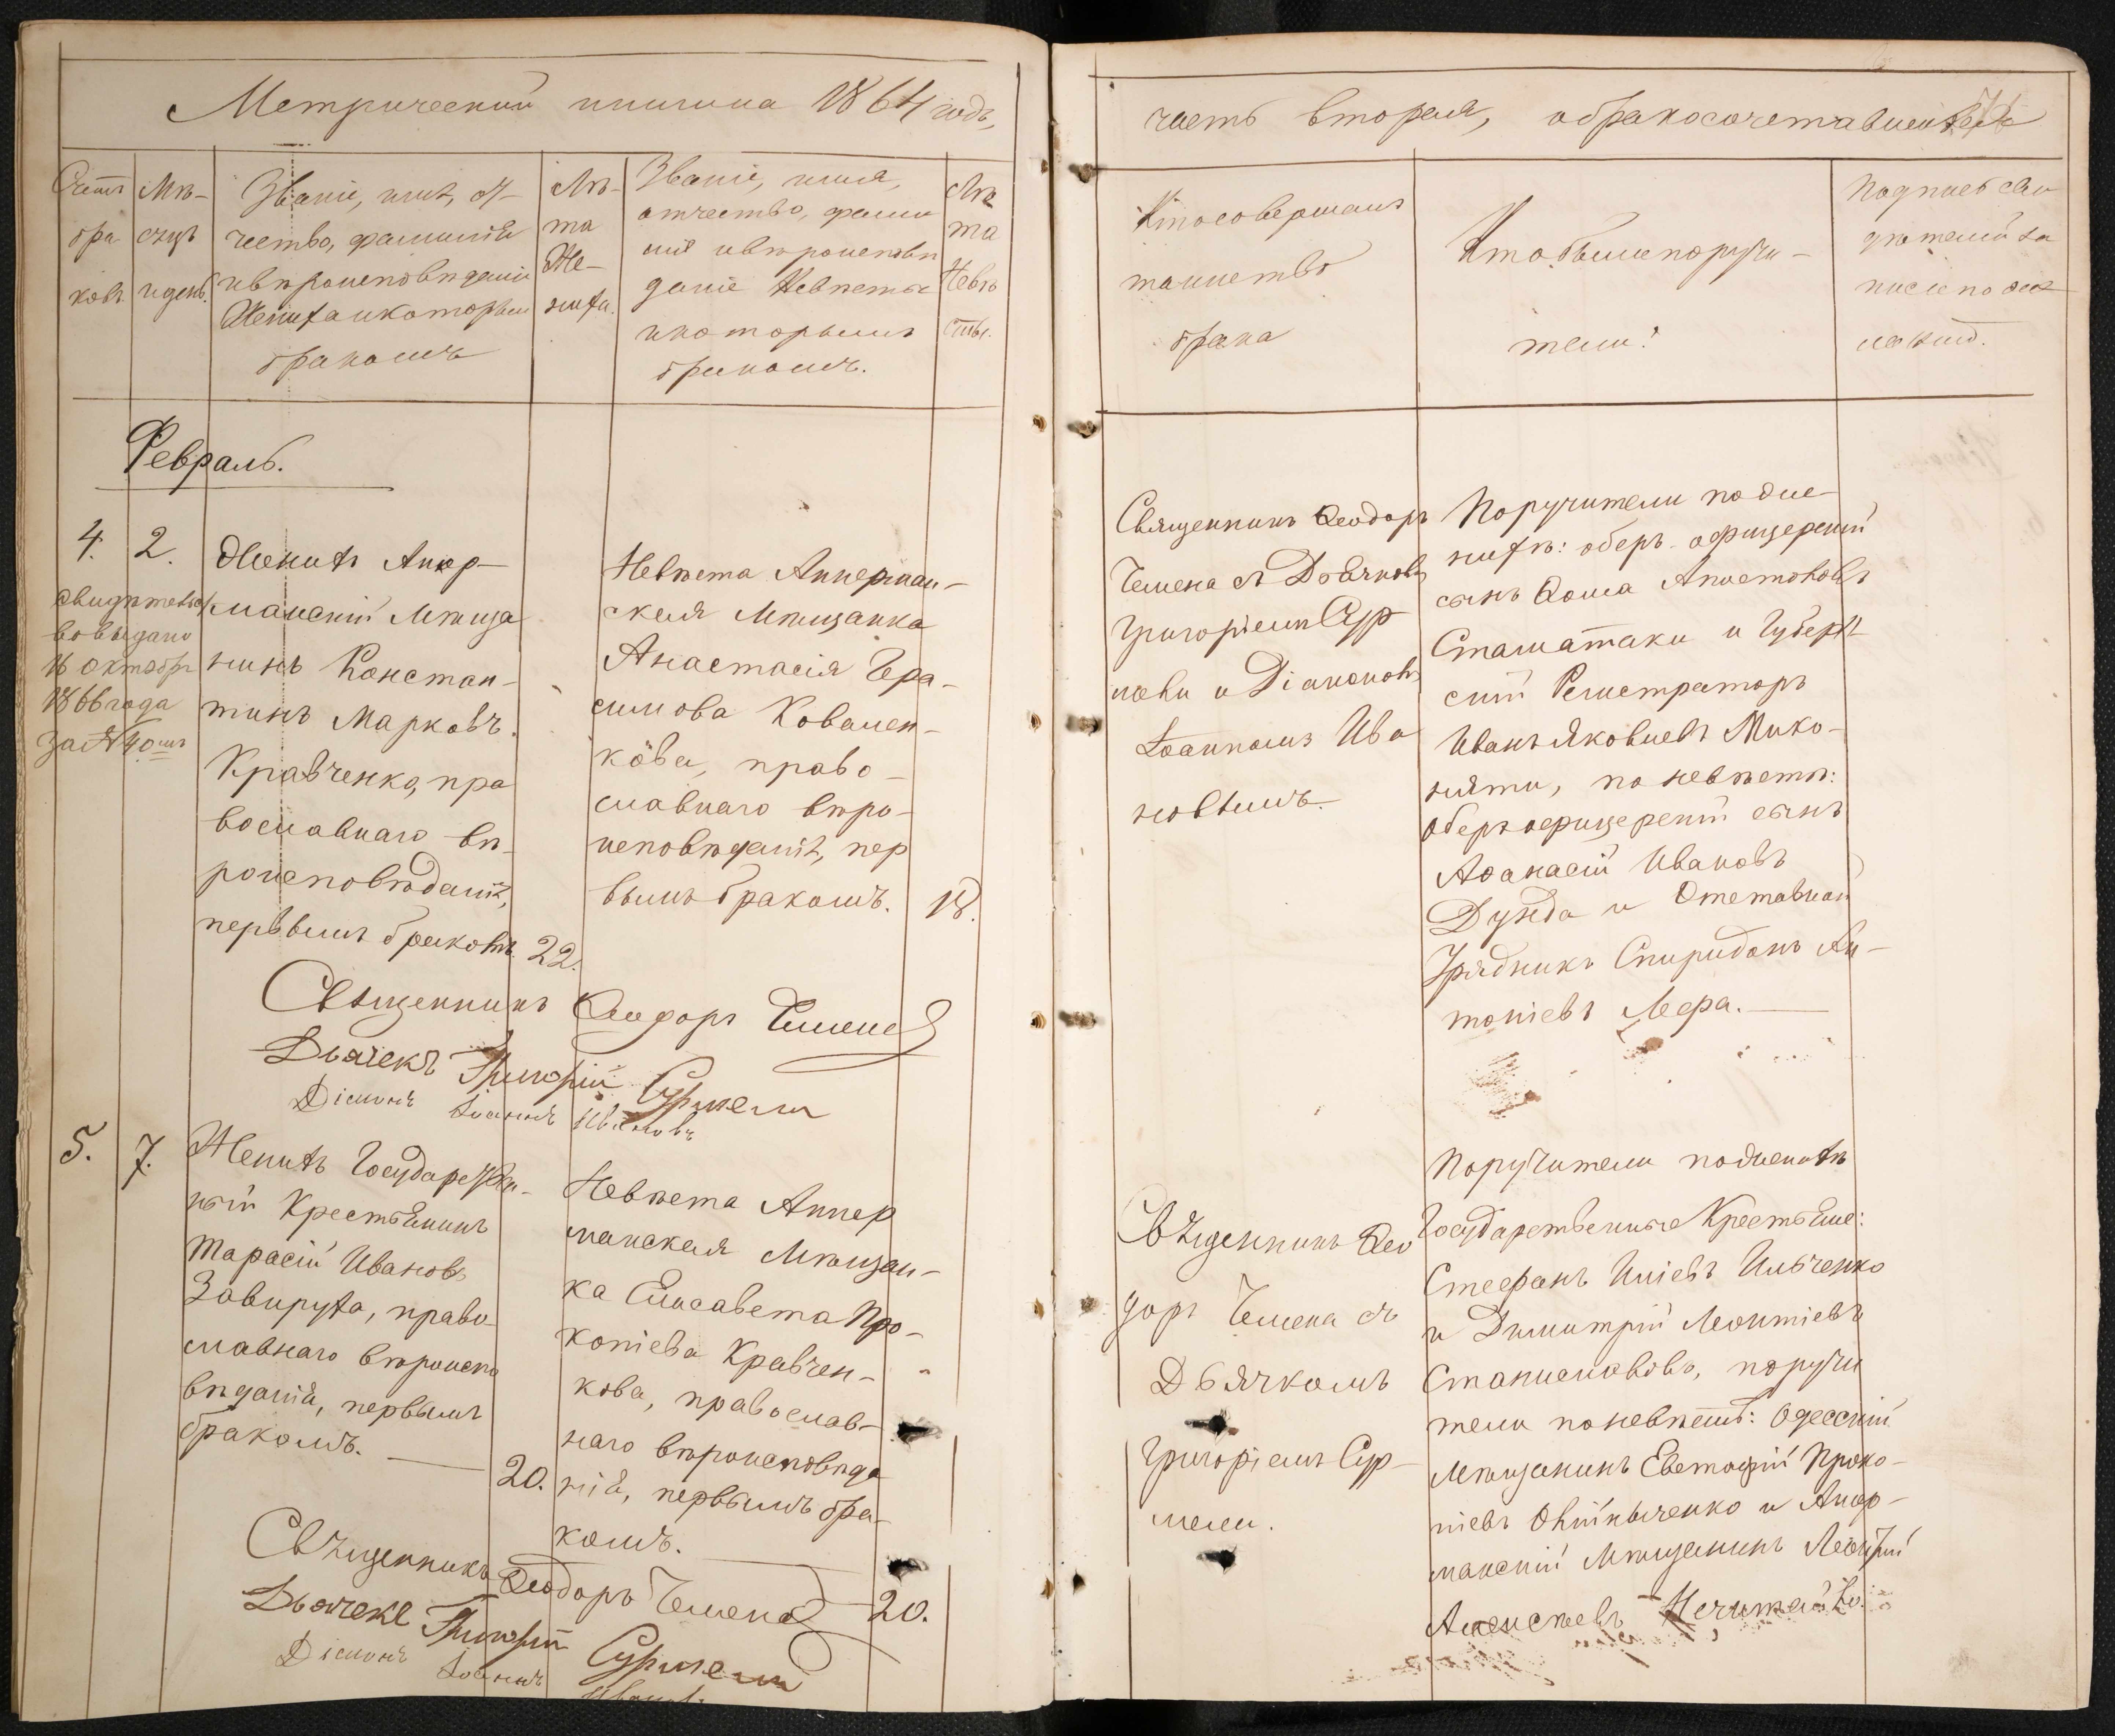 Метрической книги на 1864 годъ,
Счетъ
бра
ковъ
Мѣ-
сяцъ
и день.
Званіе, имя, от-
чество, фамилія
и вѣроисповѣданіе
Жениха и которымъ
бракомъ
Лѣ-
та
Же-
ниха.
Званіе, имя,
отчество, фами
лія и вѣроисповѣ
даніе Невѣсты
и которымъ
бракомъ.
Лѣ
та
Невѣ
сты.
Февраль.
4.
2.
свидѣтельс
во выдано
16 октября
1866 года
за № 40мъ
Женихъ Аккер-
манскій Мѣща
нинъ Констан-
тинъ Марковъ
Кравченко, пра
вославнаго вѣ-
роисповѣданія,
первымъ бракомъ.
22.
Невѣста Аккерман-
ская Мѣщанка
Анастасія Гера-
симова Ковален-
кова, право-
славнаго вѣро-
исповѣданія, пер
вымъ бракомъ.
18.
Священникъ Ѳеодоръ Челена
Дьячекъ Григорій Сурмели
Діаконъ Іоаннъ Ивановъ
5.
7.
Женихъ Государствен-
ный Крестьянинъ
Тарасій Ивановъ
Завируха, право
славнаго вѣроиспо
вѣданія, первымъ
бракомъ.
20.
Невѣста Аккер
манская Мѣщан-
ка Елисавета Про-
копіева Кравчен-
кова, православ-
наго вѣроисповѣда
нія, первымъ бра-
комъ.
20.
Священникъ Ѳеодоръ Челена
Дьячекъ Григорій Сурмели
Діаконъ Іоаннъ Ивановъ
часть вторая, о бракосочетавшихся
Кто совершалъ
таинство
брака
Кто были поручи-
тели?
Подпись сви
дѣтелей за
писи по же
ланію.
Священникъ Ѳеодоръ
Челена съ Дьячковъ
Григоріемъ Сур
мели и Діакономъ
Іоанномъ Ива
новымъ.
Поручители по же-
нихѣ: оберъ-офицерскій
сынъ Ѳома Апостоловъ
Стаматаки и Губерн
скій Регистраторъ
Иванъ Яковлевъ Мико-
нияти, по невѣстѣ:
оберъ офицерскій сынъ
Аѳанасій Ивановъ
Дунда и Отставной
Урядникъ Спиридонъ Ан-
тоніевъ Лефа.
Священникъ Ѳео
доръ Челена съ
Дьячкомъ
Григоріемъ Сур-
мели.
Поручители по женихѣ
Государственные Крестьяне:
Стефанъ Иліевъ Ильченко
и Димитрій Леонтіевъ
Станиславовъ, поручи
тели по невѣстѣ: Одесскій
Мѣщанинъ Евстафій Проко-
піевъ и Аккер-
манскій Мѣщанинъ
Алексѣевъ Нечитайло.